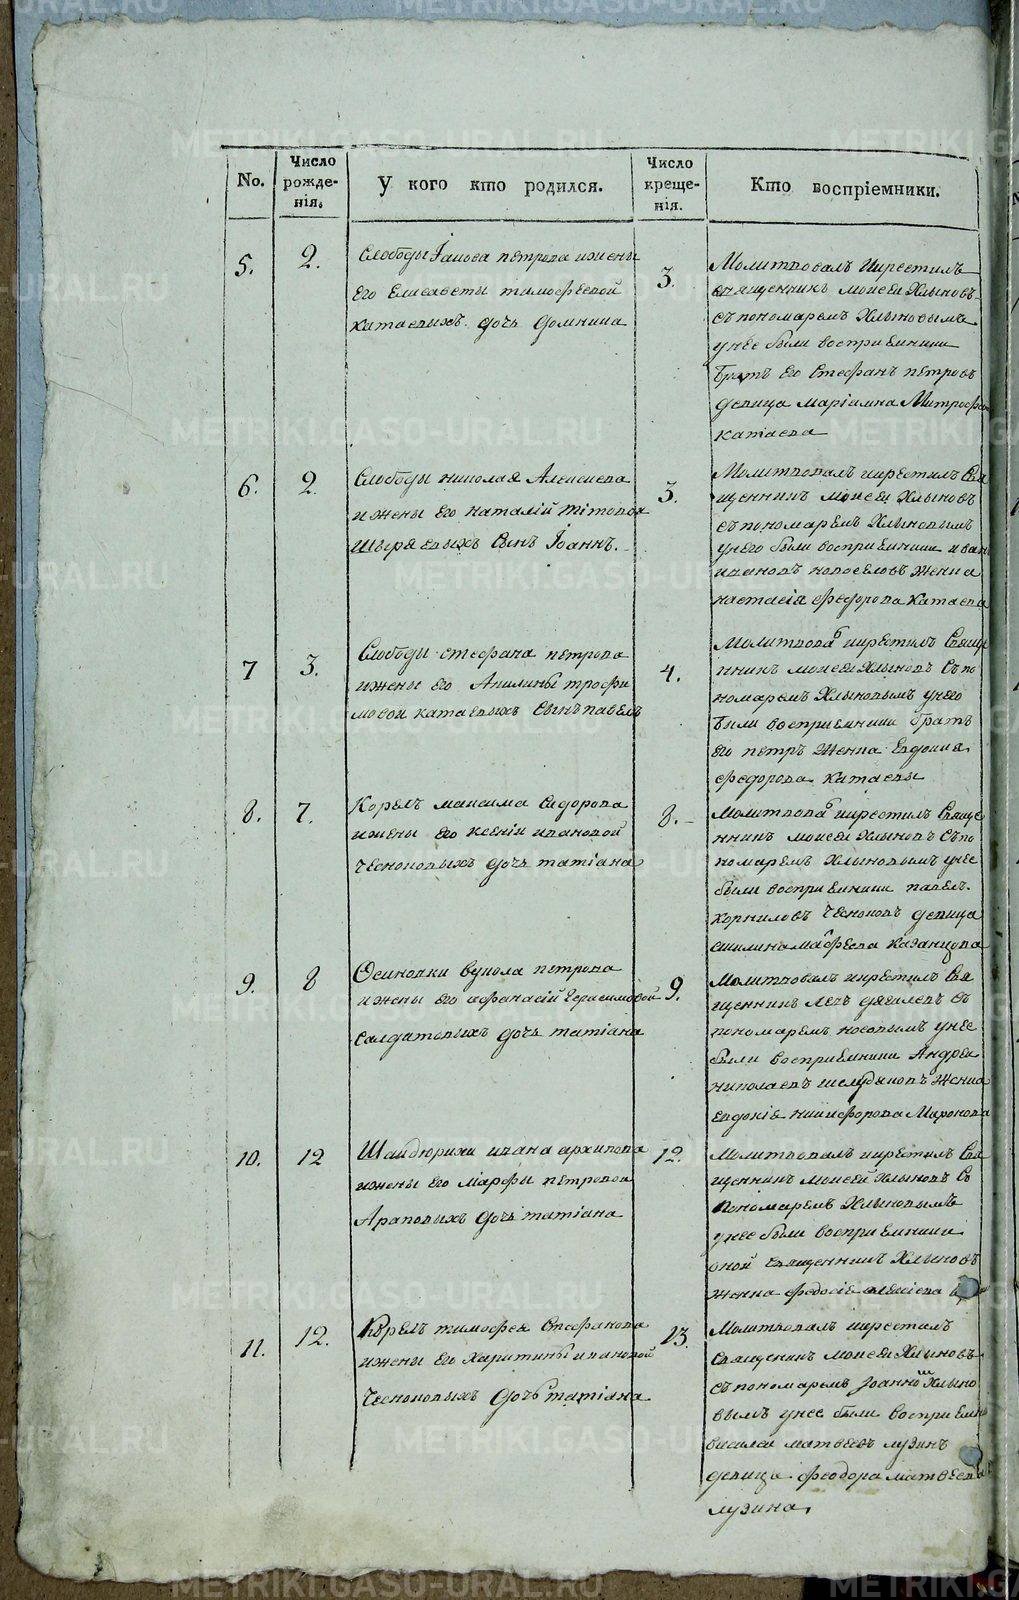 No.
Число рожде-нія.
У кого кто родился.
Число креще-нія.
Кто воспріемники.
5.
2.
Слободы Іакова петрова ижены
его Елисаветы тимофеевой
катаевыхъ дочь домнина
3.
Молитвовалъ икрестилъ
священникъ моисей Хлыновъ
съ пономаремъ Хлыновымъ
унее были восприемники
братъ его Стефанъ петровъ
девица маріамна Митроф
катаева
6.
2.
Слободы николая Алексиева
ижены его наталіи титовой
Сынъ Іоаннъ.
3.
Молитвовалъ икрестилъ Свя
щенникъ моисей Хлыновъ
съ пономаремъ Хлыновымъ
унего были восприемники иван
ивановъ новоселовъ женка
настасія феодорова катаева
7
3.
Слободы стефана петрова
ижены его Акилины трофи
мовой катаевыхъ Сынъ павелъ
4.
Молитвова икрестилъ Свяще
нникъ моисей Хлыновъ Съ по
номаремъ Хлыновымъ унего
были восприемники братъ
его петръ женка Евдокия
феодорова катаевы
8.
7.
максима Сидорова
ижены его ксеніи ивановой
Чесноковыхъ дочь татіана
8.
Молитвова икрестилъ Свяще
нникъ моисей Хлыновъ Съ по
номаремъ Хлыновымъ унее
были восприемники павелъ
корниловъ Чесноковъ девица
казанцова
9.
8
Осиновки вукола петрова
ижены его афанасіи Герасимовой
Салдатовыхъ дочь татіана
9.
Молитвовалъ икрестилъ Свя
щенникъ съ
пономаремъ носовымъ унее
были восприемники Андреи
николаевъ женка
евдокіе никифорова Миронова
10.
12
ивана архипова
ижены его Марфы петровой
Араповыхъ дочь татіана
12.
Молитвовалъ икрестилъ Свя
щенникъ моисей Хлыновъ Съ
пономаремъ Хлыновымъ
унее были восприемники
оной священникъ Хлыновъ
женка федосіе
11.
12.
тимофея Стефанова
ижены его Харитины ивановой
Чесноковыхъ дочь татіана
13.
Молитвовалъ икрестилъ
Священникъ моисей Хлыновъ
съ пономаремъ Іоанномъ Хлыно
вымъ унее были восприемни
василеи матвеевъ лузинъ
девица феодора матвеева
лузина